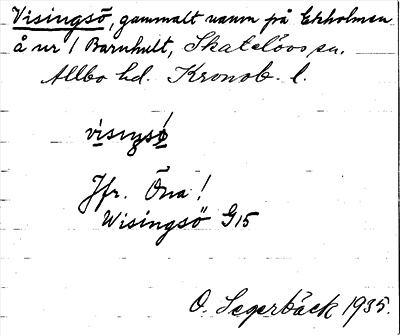 Visingsö, gammalt namn på Ekholmen
å nr 1 Barnhult, Skatelövs sn.
Allbo hd. Kronob. l.
visiŋsö
Jfr. Öna!
Wisingsö G15
O. Segerbäck 1935.